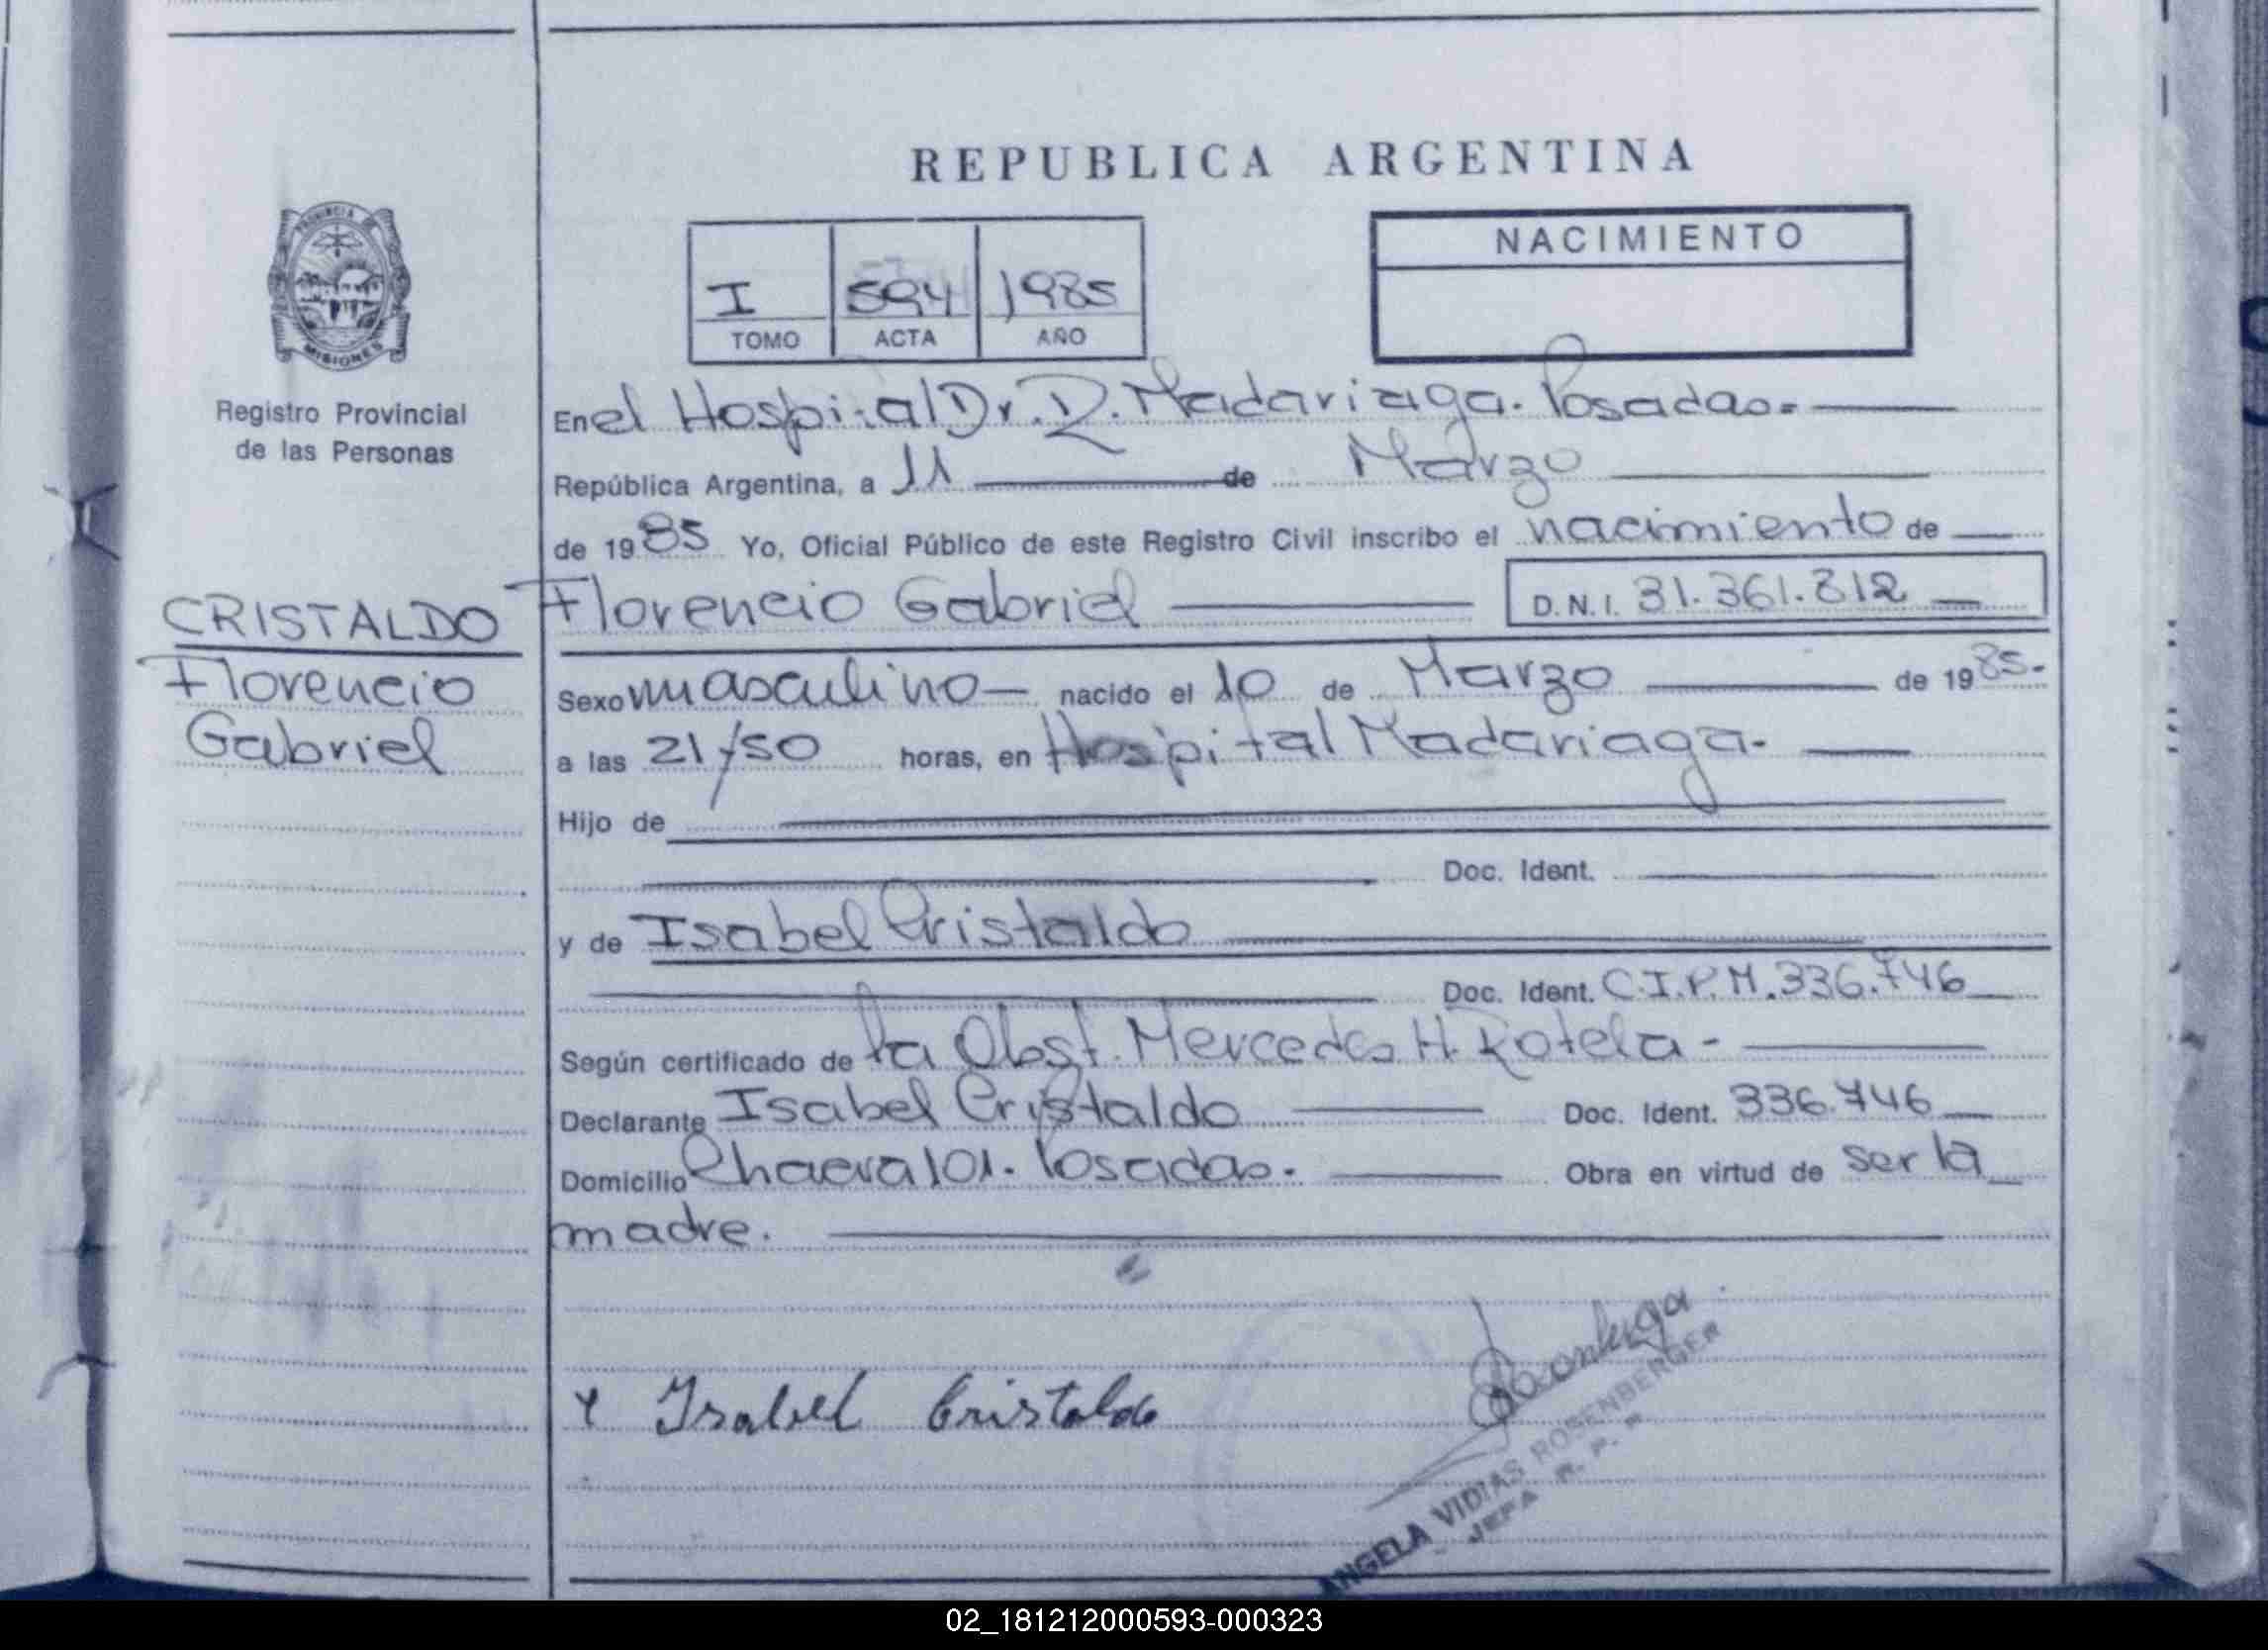 REPUBLICA ARGENTINA
PROVINCIA DE
MISIONES
Registro Provincial
de las Personas
NACIMIENTO
I 594 1985
TOMO ACTA AÑO
En el Hospital Dr. R. Madariaga. Posadas.
República Argentina, a 11 de Marzo
de 1985 Yo, Oficial Público de este Registro Civil inscribo el nacimiento de
CRISTALDO
Florencio
Gabriel
Florencio Gabriel D.N.I. 31.361.812
Sexo masculino nacido el 10 de Marzo de 1985.
a las 21/50 horas, en Hospital Madariaga.
Hijo de
Doc. Ident.
y de Isabel Cristaldo
Doc. Ident. C.I.P.M. 336.746
Según certificado de la Obst. Mercedes H. Rotela
Declarante Isabel Cristaldo Doc. Ident. 336.746
Domicilio Chacra 101. Posadas. Obra en virtud de ser la
madre.
Isabel Cristaldo
ANGELA VIDIAS ROSENBERGER
JEFA R. P. P.
02_181212000593-000323